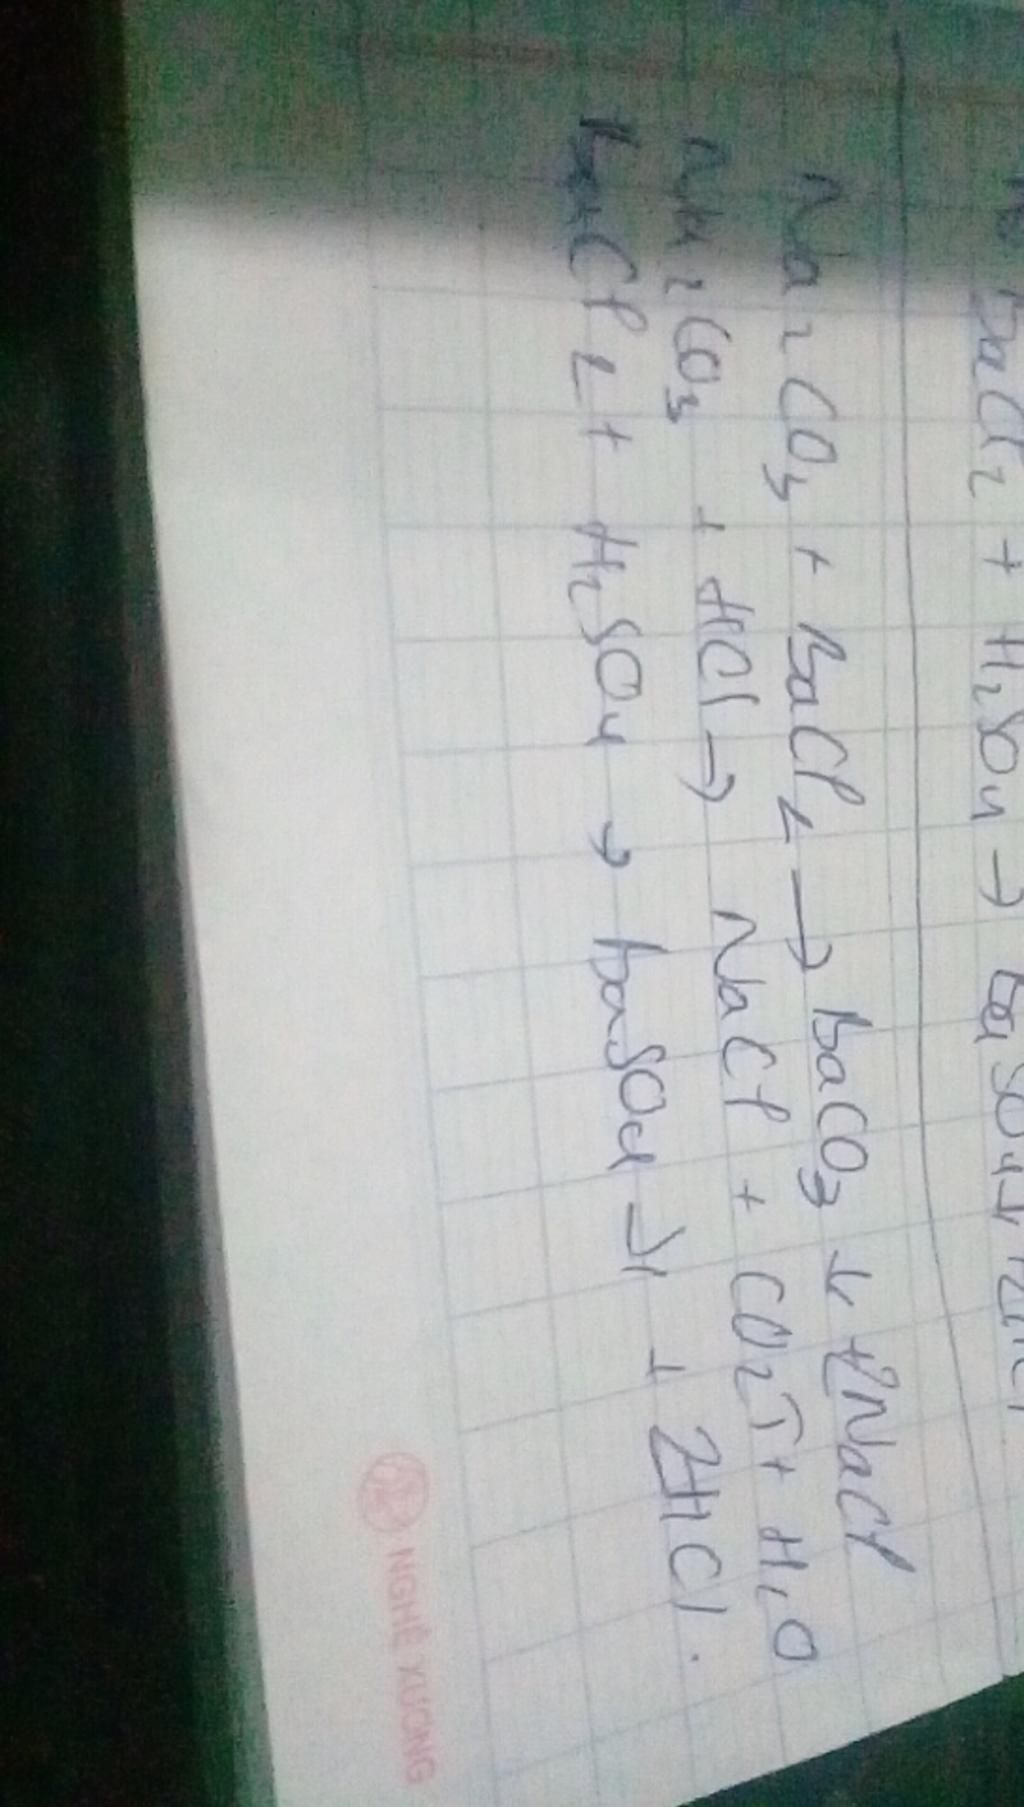 BaCl2 + H2SO4 → BaSO4↓
Na2CO3 + BaCl2 → BaCO3 ↓ + 2NaCl
Na2CO3 + HCl → NaCl + CO2↑ + H2O
BaCl2 + H2SO4 → BaSO4 ↓ + 2HCl.
NGHÊ XUONG